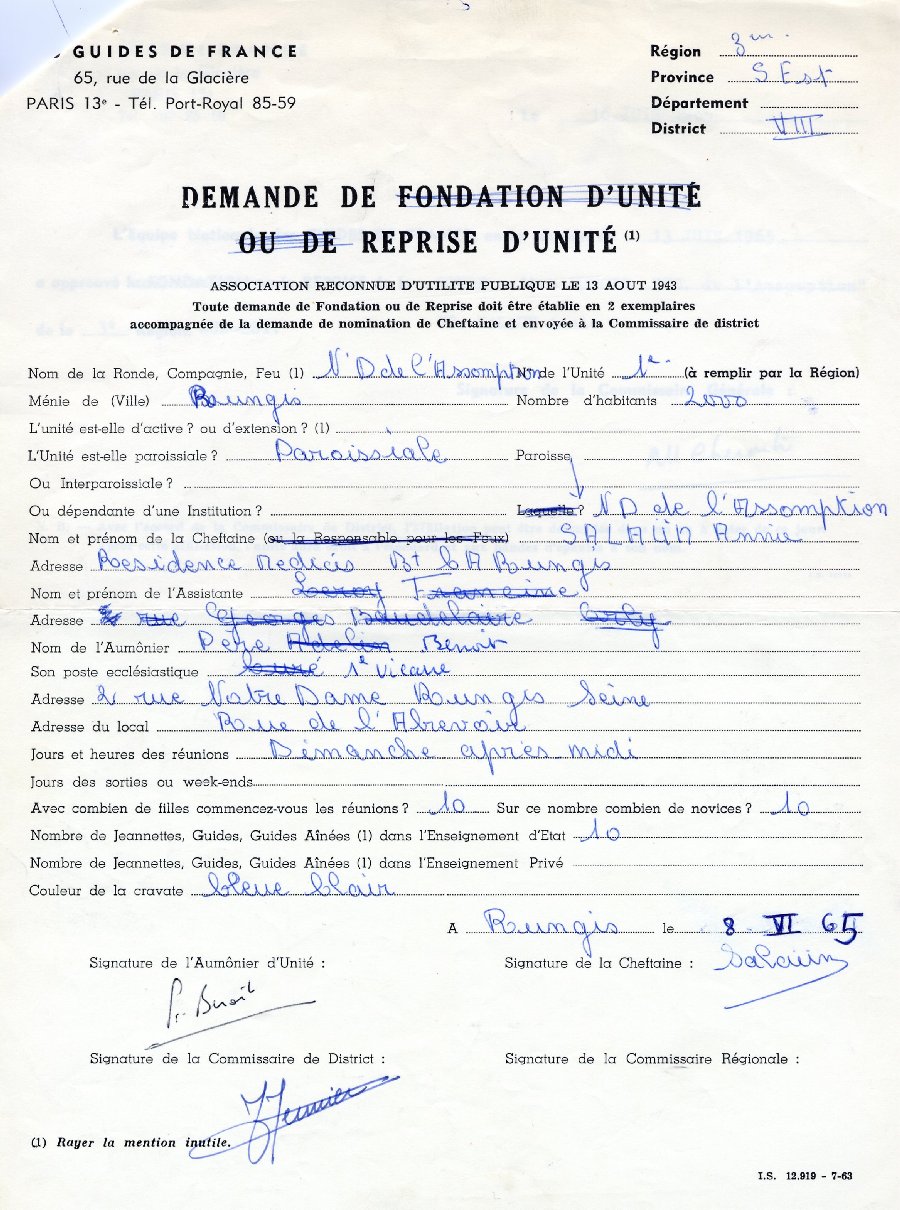 GUIDES DE FRANCE
65, rue de la Glacière
PARIS 13e - Tél. Port-Royal 85-59
Région
Province S Est
Département
District VIII
DEMANDE DE FONDATION D'UNITÉ
OU DE REPRISE D'UNITÉ (1)
ASSOCIATION RECONNUE D'UTILITE PUBLIQUE LE 13 AOUT 1943
Toute demande de Fondation ou de Reprise doit être établie en 2 exemplaires
accompagnée de la demande de nomination de Cheftaine et envoyée à la Commissaire de district
Nom de la Ronde, Compagnie, Feu (1) N D de l'Assomption N de l'Unité 1e (à remplir par la Région)
Ménie de (Ville) Rungis Nombre d'habitants 2000
L'unité est-elle d'active ? ou d'extension ? (1)
L'Unité est-elle paroissiale ? Paroissiale Paroisse
Ou Interparoissiale ?
Ou dépendante d'une Institution ? Laquelle ? N D de l'Assomption
Nom et prénom de la Cheftaine (ou la Responsable pour les Feux) SALAÜN Annie
Adresse Residence Medicis Bt 6A Rungis
Nom et prénom de l'Assistante Leroy Francine
Adresse rue Georges Baudelaire Orly
Nom de l'Aumônier Père Adelin Benoit
Son poste ecclésiastique Curé 1e Vicaire
Adresse 2 rue Notre Dame Rungis Seine
Adresse du local Rue de l'Abrevoir
Jours et heures des réunions Dimanche après midi
Jours des sorties ou week-ends
Avec combien de filles commencez-vous les réunions ? 10 Sur ce nombre combien de novices ? 10
Nombre de Jeannettes, Guides, Guides Aînées (1) dans l'Enseignement d'Etat 10
Nombre de Jeannettes, Guides, Guides Aînées (1) dans l'Enseignement Privé
Couleur de la cravate bleue clair
A Rungis le 8 VI 65
Signature de l'Aumônier d'Unité : Signature de la Cheftaine : Salaün
P. Benoit
Signature de la Commissaire de District : Signature de la Commissaire Régionale :
(1) Rayer la mention inutile.
I.S. 12.919 - 7-63